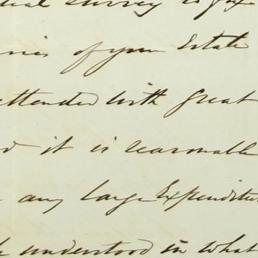 survey
of your Estate
attended with great
it is reasonable
any large Expenditu
understood in what